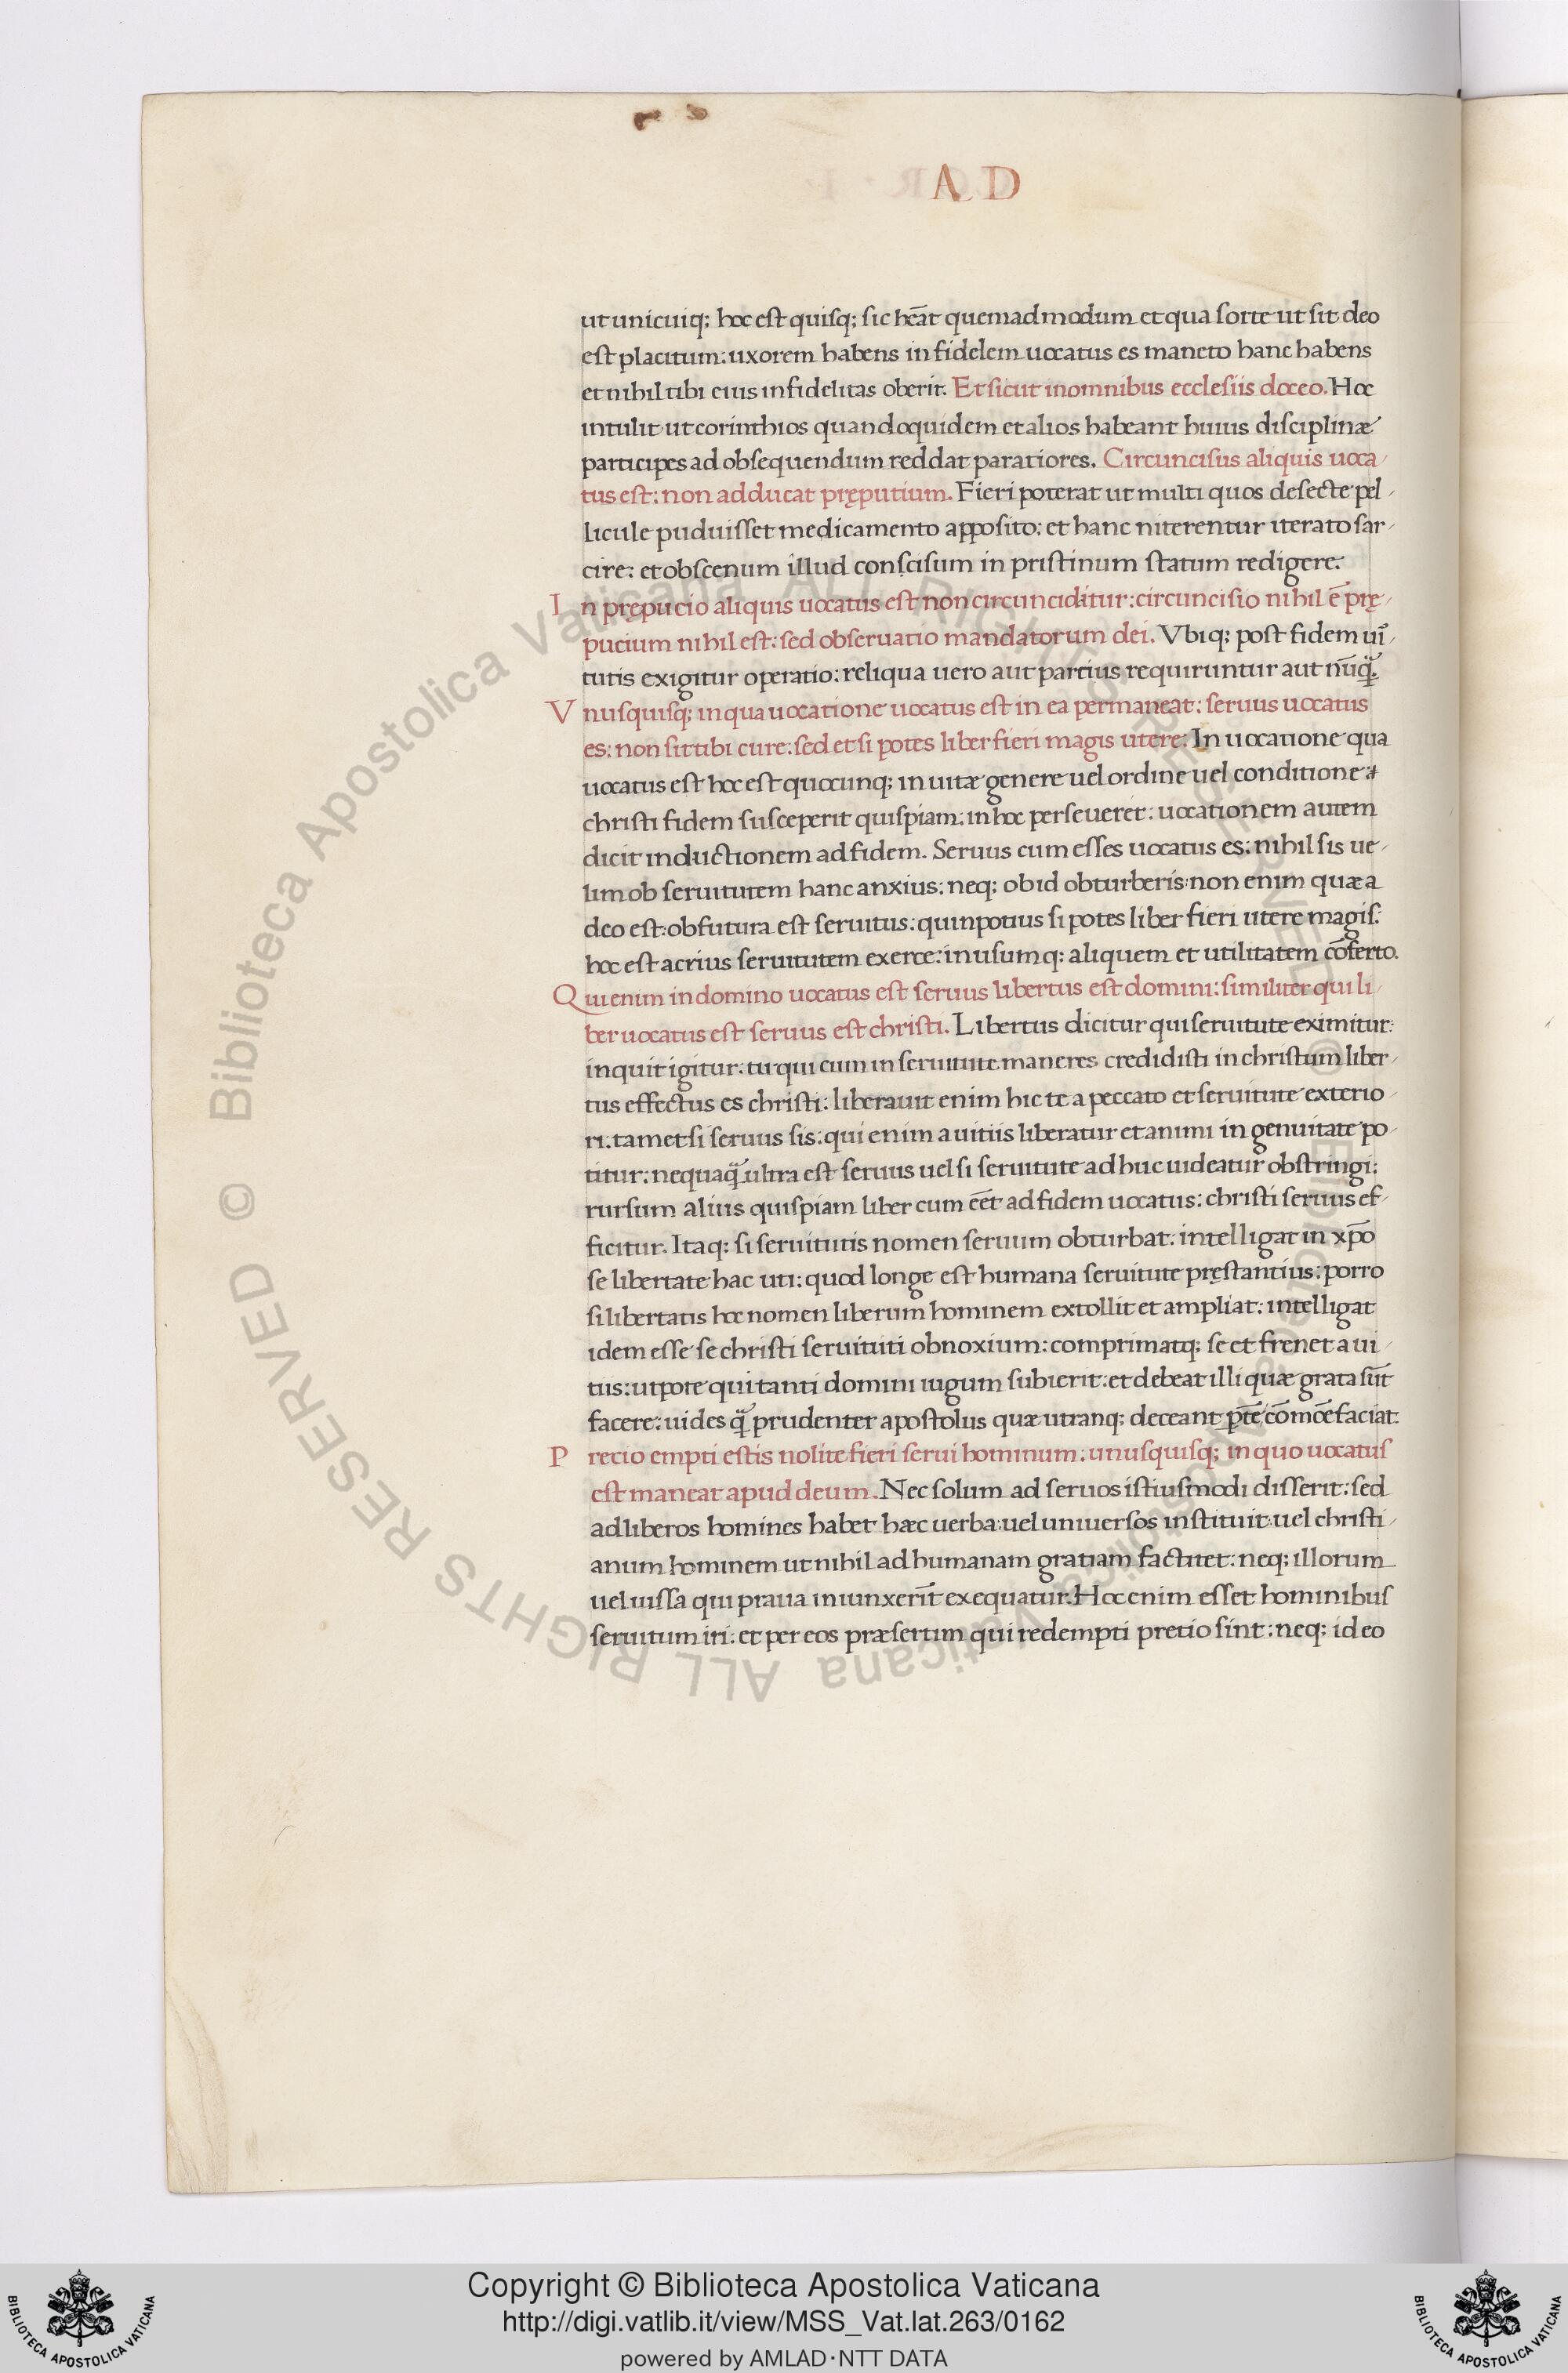 AD
ut unicuiq; hoc est quisq; sic hēat quemadmodum et qua sorte ut sit deo
est placitum: uxorem habens infidelem uocatus es maneto hanc habens
et nihil tibi eius infidelitas oberit. Et sicut in omnibus ecclesiis doceo. Hoc
intulit ut corinthios quandoquidem et alios habeant huius disciplinæ
participes ad obsequendum reddat paratiores. Circuncisus aliquis uoca-
tus est: non adducat pręputium. Fieri poterat ut multi quos desecte pel-
licule puduisset medicamento apposito: et hanc niterentur iterato sar-
cire: et obscenum illud conscisum in pristinum statum redigere.
In prępucio aliquis uocatus est non circuncidatur: circuncisio nihil ē prę-
pucium nihil est: sed obseruatio mandatorum dei. Vbiq; post fidem uī-
tutis exigitur operatio: reliqua uero aut partius requiruntur aut nūq̄.
Vnusquisq; in qua uocatione uocatus est in ea permaneat: seruus uocatus
es: non sit tibi cure: sed et si potes liber fieri magis utere. In uocatione qua
uocatus est hoc est quocunq; in uitæ genere uel ordine uel conditione:
christi fidem susceperit quispiam: in hoc perseueret: uocationem autem
dicit inductionem ad fidem. Seruus cum esses uocatus es: nihil sis ue-
lim ob seruitutem hanc anxius: neq; ob id obturberis: non enim quæ a
deo est: obfutura est seruitus: quinpotius si potes liber fieri utere magis:
hoc est acrius seruitutem exerce: in usumq; aliquem et utilitatem cōferto.
Qui enim in domino uocatus est seruus libertus est domini: similiter qui li-
ber uocatus est seruus est christi. Libertus dicitur qui seruitute eximitur:
inquit igitur: tu qui cum in seruitute maneres credidisti in christum liber-
tus effectus es christi: liberauit enim hic te a peccato et seruitute exterio-
ri: tametsi seruus sis: qui enim a uitiis liberatur et animi ingenuitate po-
titur: nequaq̄ ultra est seruus uel si seruitute ad huc uideatur obstringi:
rursum alius quispiam liber cum eēt ad fidem uocatus: christi seruus ef-
ficitur. Itaq; si seruitutis nomen seruum obturbat: intelligat in xp̄o
se libertate hac uti: quod longe est humana seruitute pręstantius: porro
si libertatis hoc nomen liberum hominem extollit et ampliat: intelligat
idem esse se christi seruituti obnoxium: comprimatq; se et frenet a ui-
tiis: utpote qui tanti domini iugum subierit: et debeat illi quæ grata sūt
facere: uides q̄ prudenter apostolus quæ utranq; deceant p̄tē cōmōefaciat:
Precio empti estis nolite fieri serui hominum: unusquisq; in quo uocatus
est maneat apud deum. Nec solum ad seruos istiusmodi disserit: sed
ad liberos homines habet hæc uerba: uel uniuersos instituit: uel christi-
anum hominem ut nihil ad humanam gratiam factitet: neq; illorum
uel iussa qui praua iniunxerīt exequatur. Hoc enim esset hominibus
seruitum iri: et per eos præsertim qui redempti pretio sint: neq; ideo
© Biblioteca Apostolica Vaticana ALL RIGHTS RESERVED © Biblioteca Apostolica Vaticana ALL RIGHTS RESERVED
Copyright © Biblioteca Apostolica Vaticana
http://digi.vatlib.it/view/MSS_Vat.lat.263/0162
powered by AMLAD·NTT DATA
BIBLIOTECA APOSTOLICA VATICANA
BIBLIOTECA APOSTOLICA VATICANA